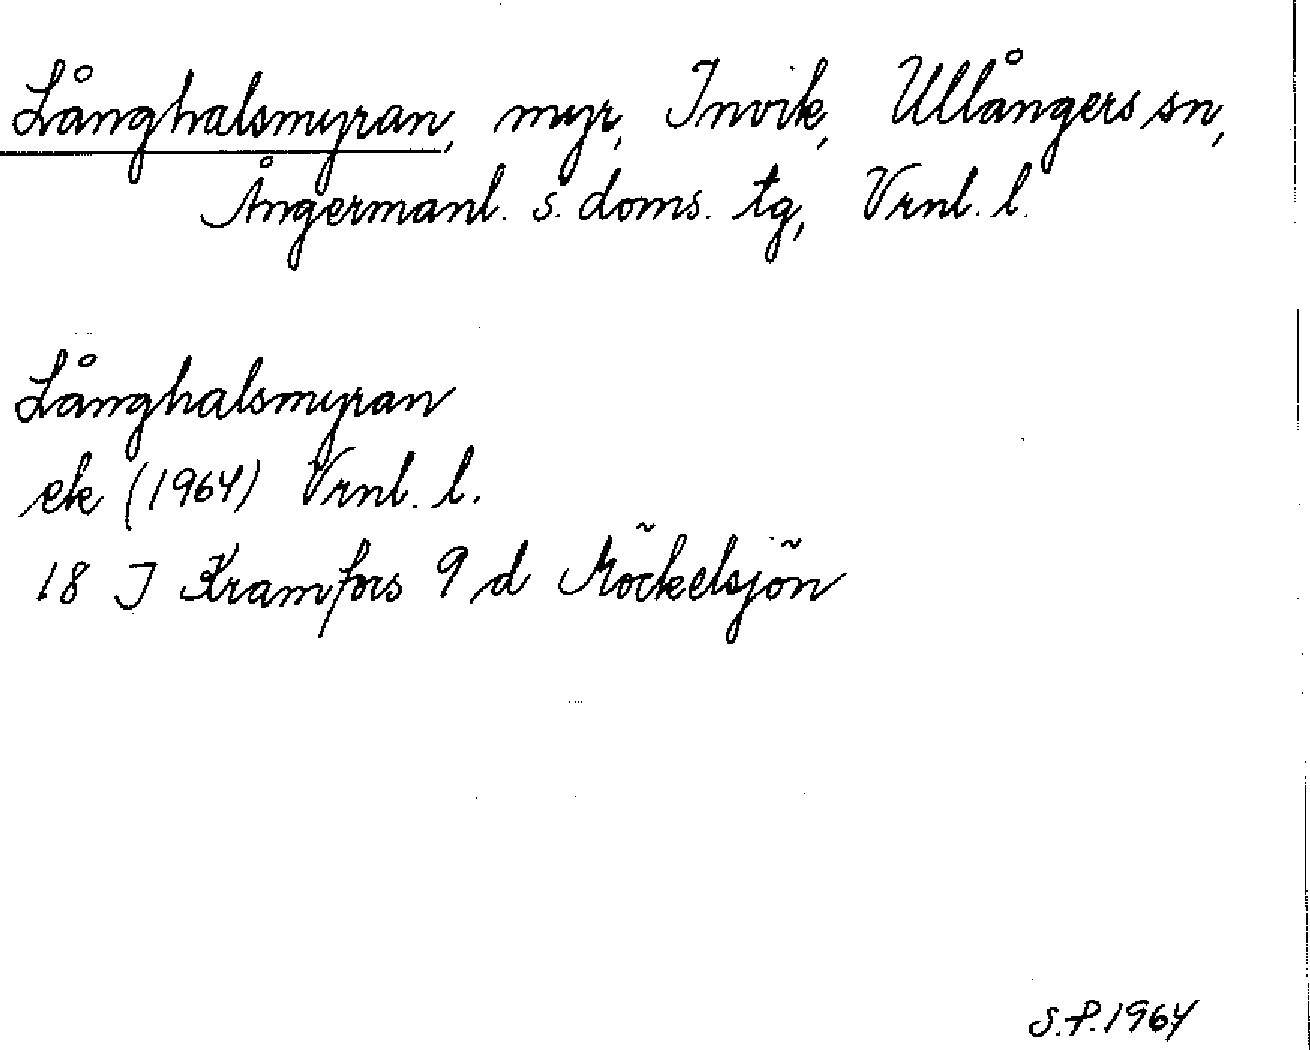 Långhalsmyran, myr, Invik, Ullångers sn,
Ångermanl. s. doms. tg, Vrnl. l.
Långhalsmyran
ek (1964) Vrnl. l.
18 J Kramfors 9 d Möckelsjön
S.P. 1964